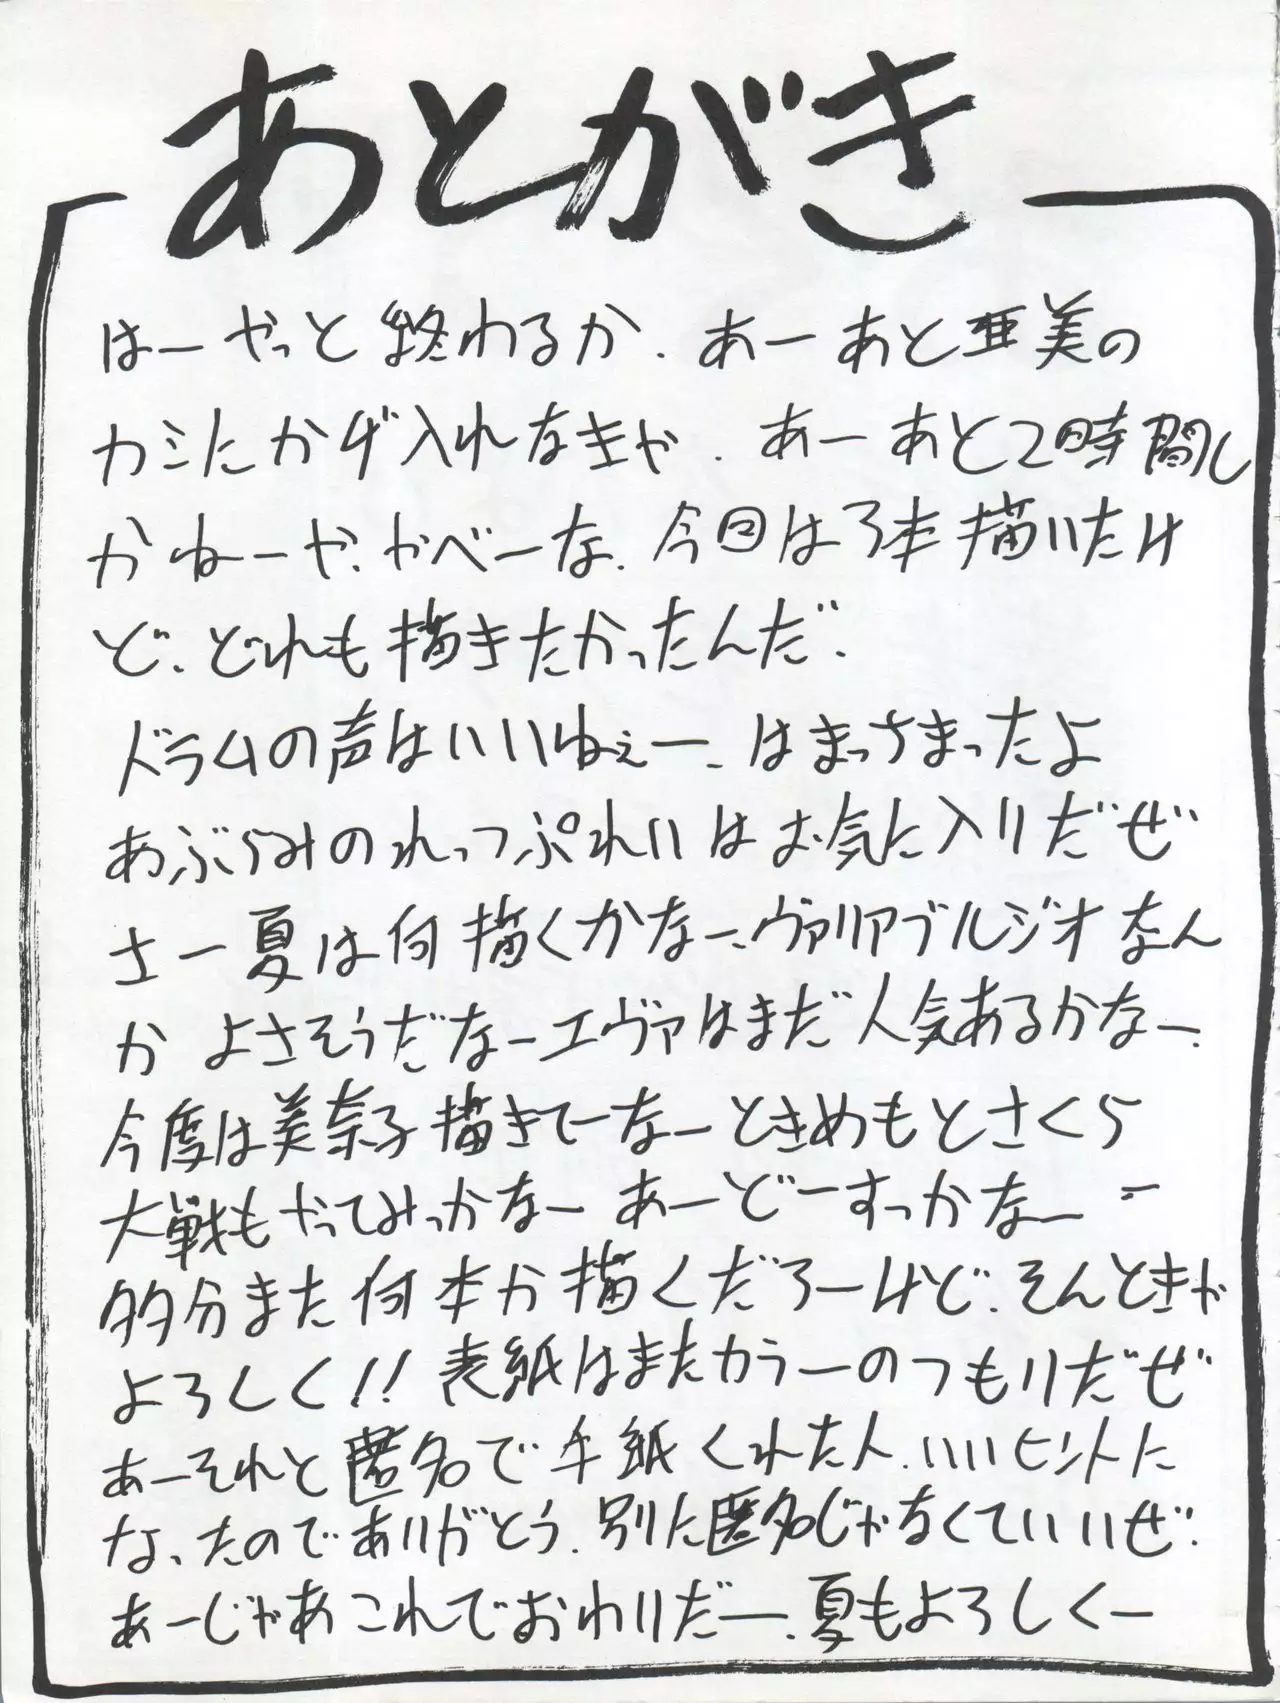 あとがき
はーやっと終わるか、あーあと亜美の
カミにかげ入れなきゃ、あーあと2時間し
かねーや、やべーな、今回は3本描いたけ
ど、どれも描きたかったんだ、
ドラムの声はいいねぇー、はまっさまったよ
あぶらみのれっつぷれいはお気に入りだぜ
さー夏は何描くかなー、ヴァリアブルジオなん
かよさそうだなーエヴァはまだ人気あるかなー、
今度は美奈子描きてーなーときめもとさくら
大戦もやってみっかなー あーどーすっかなー
多分また何本か描くだろーけど、そんときゃ
よろしく!! 表紙はまたカラーのつもりだぜ
あーそれと匿名で手紙くれた人、いいヒントに
なったのでありがとう、別に匿名じゃなくていいぜ、
あーじゃあこれでおわりだー、夏もよろしくー